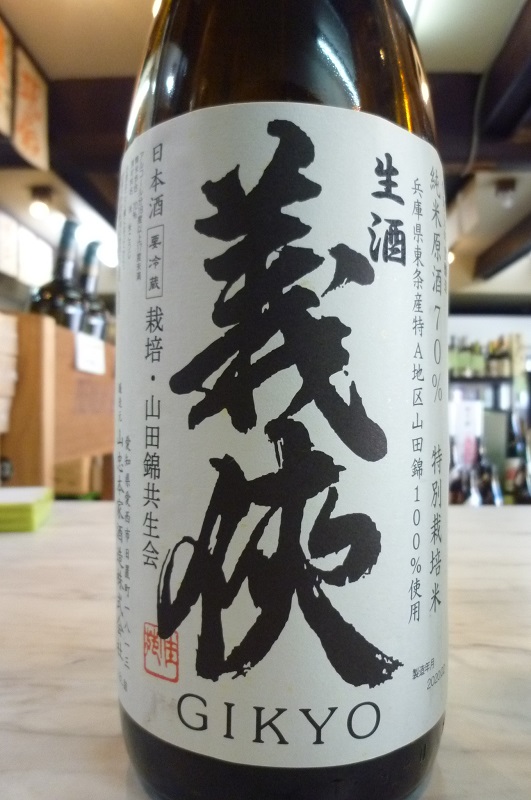 純米原酒70% 特別栽培米
兵庫県東条産特A地区山田錦100%使用
生酒
義侠
GIKYO
日本酒 要冷蔵 栽培・山田錦共生会
愛知県愛西市日置町一八一三
醸造元 山忠本家酒造株式会社
製造年月